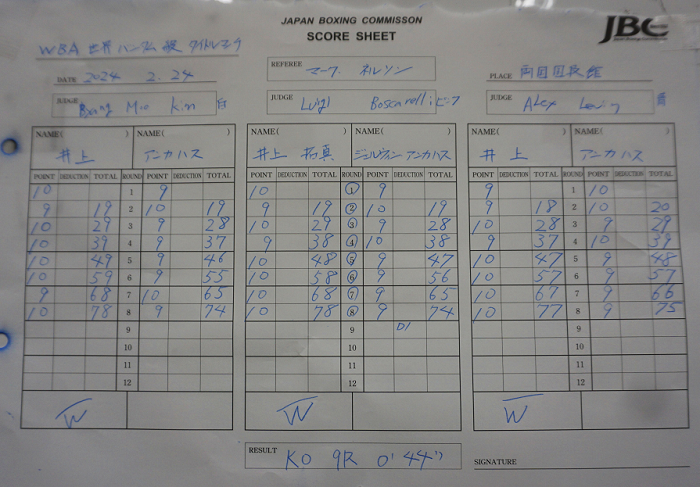 JAPAN BOXING COMMISSON
SCORE SHEET
JBC
WBA 世界バンタム級 タイトルマッチ
DATE 2024 2.24
REFEREE マーク ネルソン
PLACE 両国国技館
JUDGE
JUDGE Luigi Boscarelli ピンク
JUDGE Alex Levin
NAME( ) NAME( ) NAME( ) NAME( ) NAME( ) NAME( )
井上 アンカハス 井上 拓真 ジェルウィン アンカハス 井上 アンカハス
POINT DEDUCTION TOTAL ROUND POINT DEDUCTION TOTAL POINT DEDUCTION TOTAL ROUND POINT DEDUCTION TOTAL POINT DEDUCTION TOTAL ROUND POINT DEDUCTION TOTAL
10 1 9 10 1 9 9 1 10
9 19 2 10 19 9 19 2 10 19 9 18 2 10 20
10 29 3 9 28 10 29 3 9 28 10 28 3 9 29
10 39 4 9 37 9 38 4 10 38 9 37 4 10 39
10 49 5 9 46 10 48 5 9 47 10 47 5 9 48
10 59 6 9 55 10 58 6 9 56 10 57 6 9 57
9 68 7 10 65 10 68 7 9 65 10 67 7 9 66
10 78 8 9 74 10 78 8 9 74 10 77 8 9 75
9 9 9
10 10 10
11 11 11
12 12 12
W W W
RESULT KO 9R 0'44"
SIGNATURE